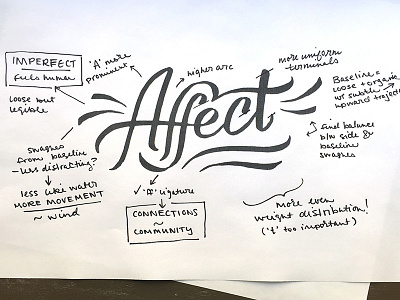 IMPERFECT
feels human
loose but
legible
'A' more
prominent
higher arc
more uniform
terminals
Baseline
loose + organic
w/ subtle
upwards
Affect
swashes
from baseline
- less distracting?
less like water
MORE MOVEMENT
~ wind
✓ 'ff' ligature
CONNECTIONS
~
COMMUNITY
find balance
b/w side &
baseline
swashes
more even
weight distribution!
('t' too important)